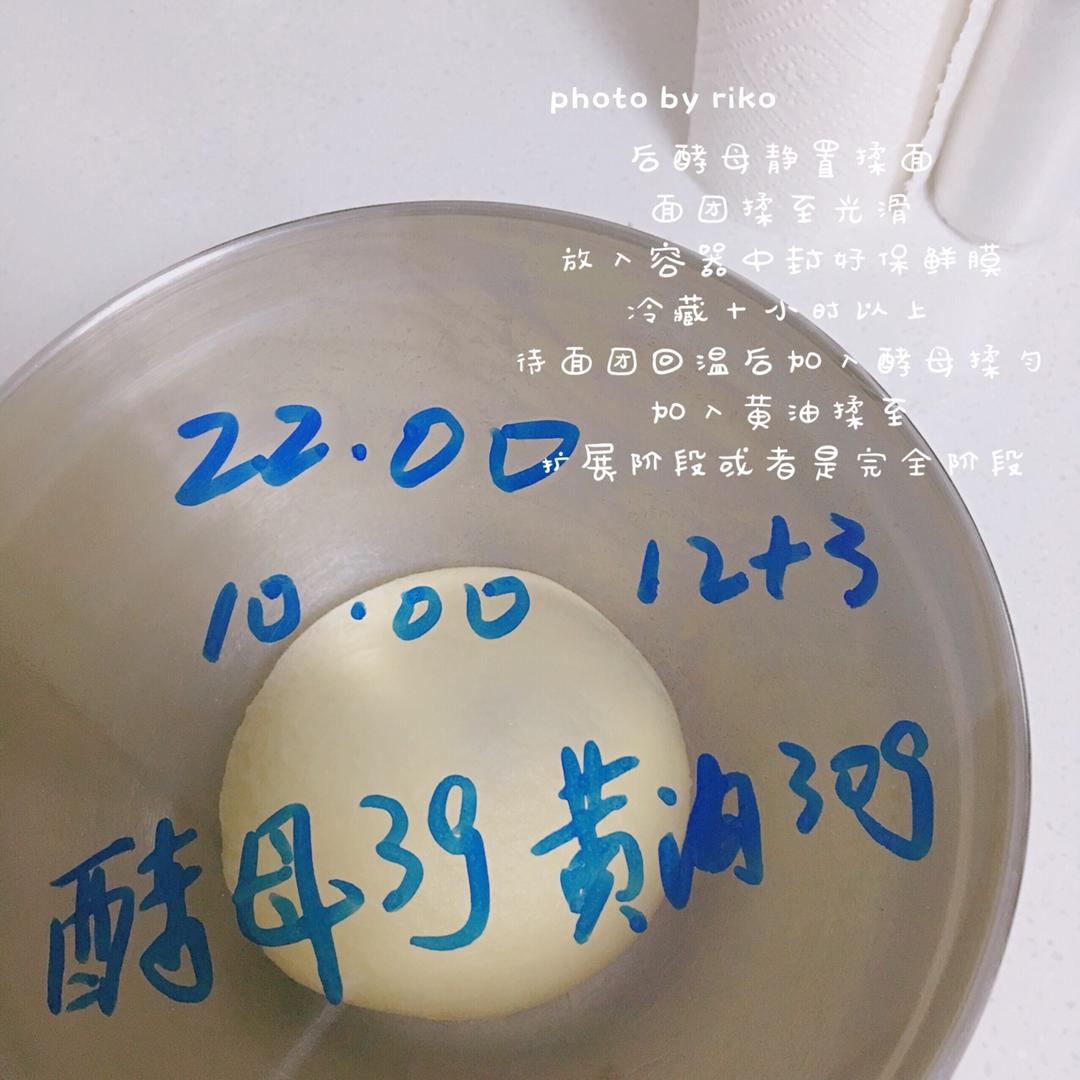 photo by riko
后酵母静置揉面
面团揉至光滑
放入容器中封好保鲜膜
冷藏十小时以上
待面团回温后加入酵母揉匀
加入黄油揉至
扩展阶段或者是完全阶段
22.00
10.00 12+3
酵母3g 黄油30g